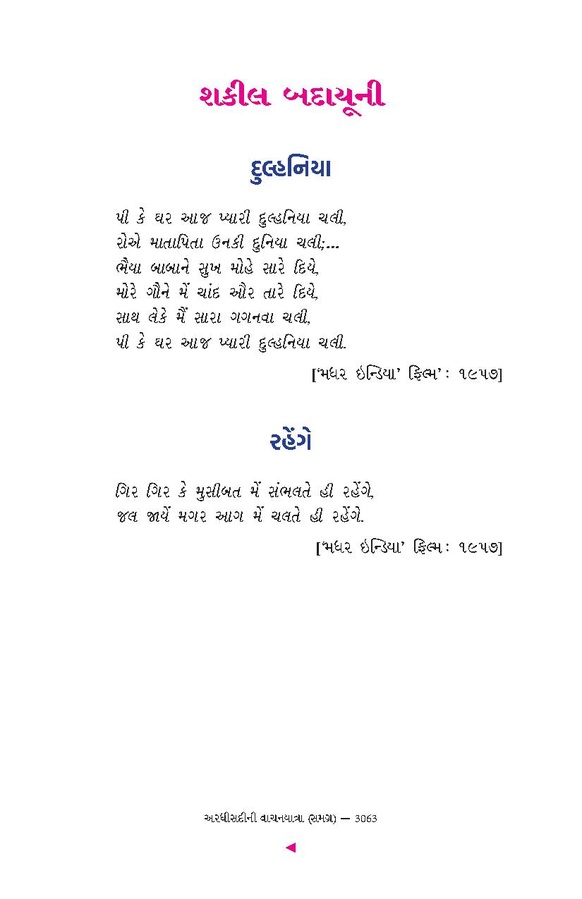 શકીલ બદાયૂની
દુલ્હનિયા
પી કે ઘર આજ પ્યારી દુલ્હનિયા ચલી,
રોએ માતાપિતા ઉનકી દુનિયા ચલી;...
ભૈયા બાબાને સુખ મોહે સારે દિયે,
મોરે ગૌને મેં ચાંદ ઔર તારે દિયે,
સાથ લેકે મૈં સારા ગગનવા ચલી,
પી કે ઘર આજ પ્યારી દુલ્હનિયા ચલી.
[‘મધર ઇન્ડિયા’ ફિલ્મ : ૧૯૫૭]
રહેંગે
ગિર ગિર કે મુસીબત મેં સંભલતે હી રહેંગે,
જલ જાયેં મગર આગ મેં ચલતે હી રહેંગે.
[‘મધર ઇન્ડિયા’ ફિલ્મ : ૧૯૫૭]
અરધીસદીની વાચનયાત્રા (સમગ્ર) — 3063